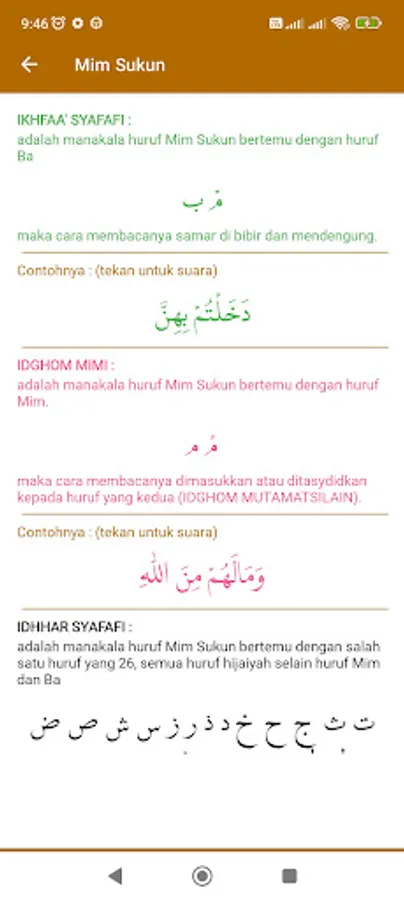 9:46
Mim Sukun
IKHFAA' SYAFAFI :
adalah manakala huruf Mim Sukun bertemu dengan huruf
Ba
مْ ب
maka cara membacanya samar di bibir dan mendengung.
Contohnya : (tekan untuk suara)
دَخَلْتُمْ بِهِنَّ
IDGHOM MIMI :
adalah manakala huruf Mim Sukun bertemu dengan huruf
Mim.
مْ م
maka cara membacanya dimasukkan atau ditasydidkan
kepada huruf yang kedua (IDGHOM MUTAMATSILAIN).
Contohnya : (tekan untuk suara)
وَمَالَهُمْ مِنَ اللهِ
IDHHAR SYAFAFI :
adalah manakala huruf Mim Sukun bertemu dengan salah
satu huruf yang 26, semua huruf hijaiyah selain huruf Mim
dan Ba
ت ث ج ح خ د ذ ر ز س ش ص ض